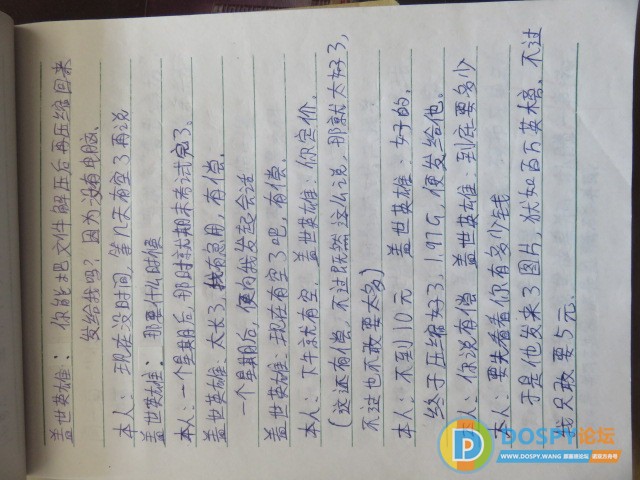 盖世英雄：你能把文件解压后再压缩回来
发给我吗？因为没有电脑、
本人：现在没时间，等几天有空了再说
盖世英雄：那要什么时候
本人：一个星期后，那时就期末考试完了。
盖世英雄：太长了，我有急用，有偿。
一个星期后，便向我发起会话
盖世英雄：现在有空了吧，有偿.
本人：下午就有空. 盖世英雄：你定价.
(这还有偿，不过既然这么说，那就太好了，
不过也不敢要太多)
本人：不到10元 盖世英雄：好的，
终于压缩好了，1.97G，便发给他。
本人：你说有偿 盖世英雄：到底要多少
本人：要先看看你有多少钱
于是他发来了图片，犹如百万英磅，不过
我只敢要5元.
DOSPY论坛
WWW.DOSPY.WANG